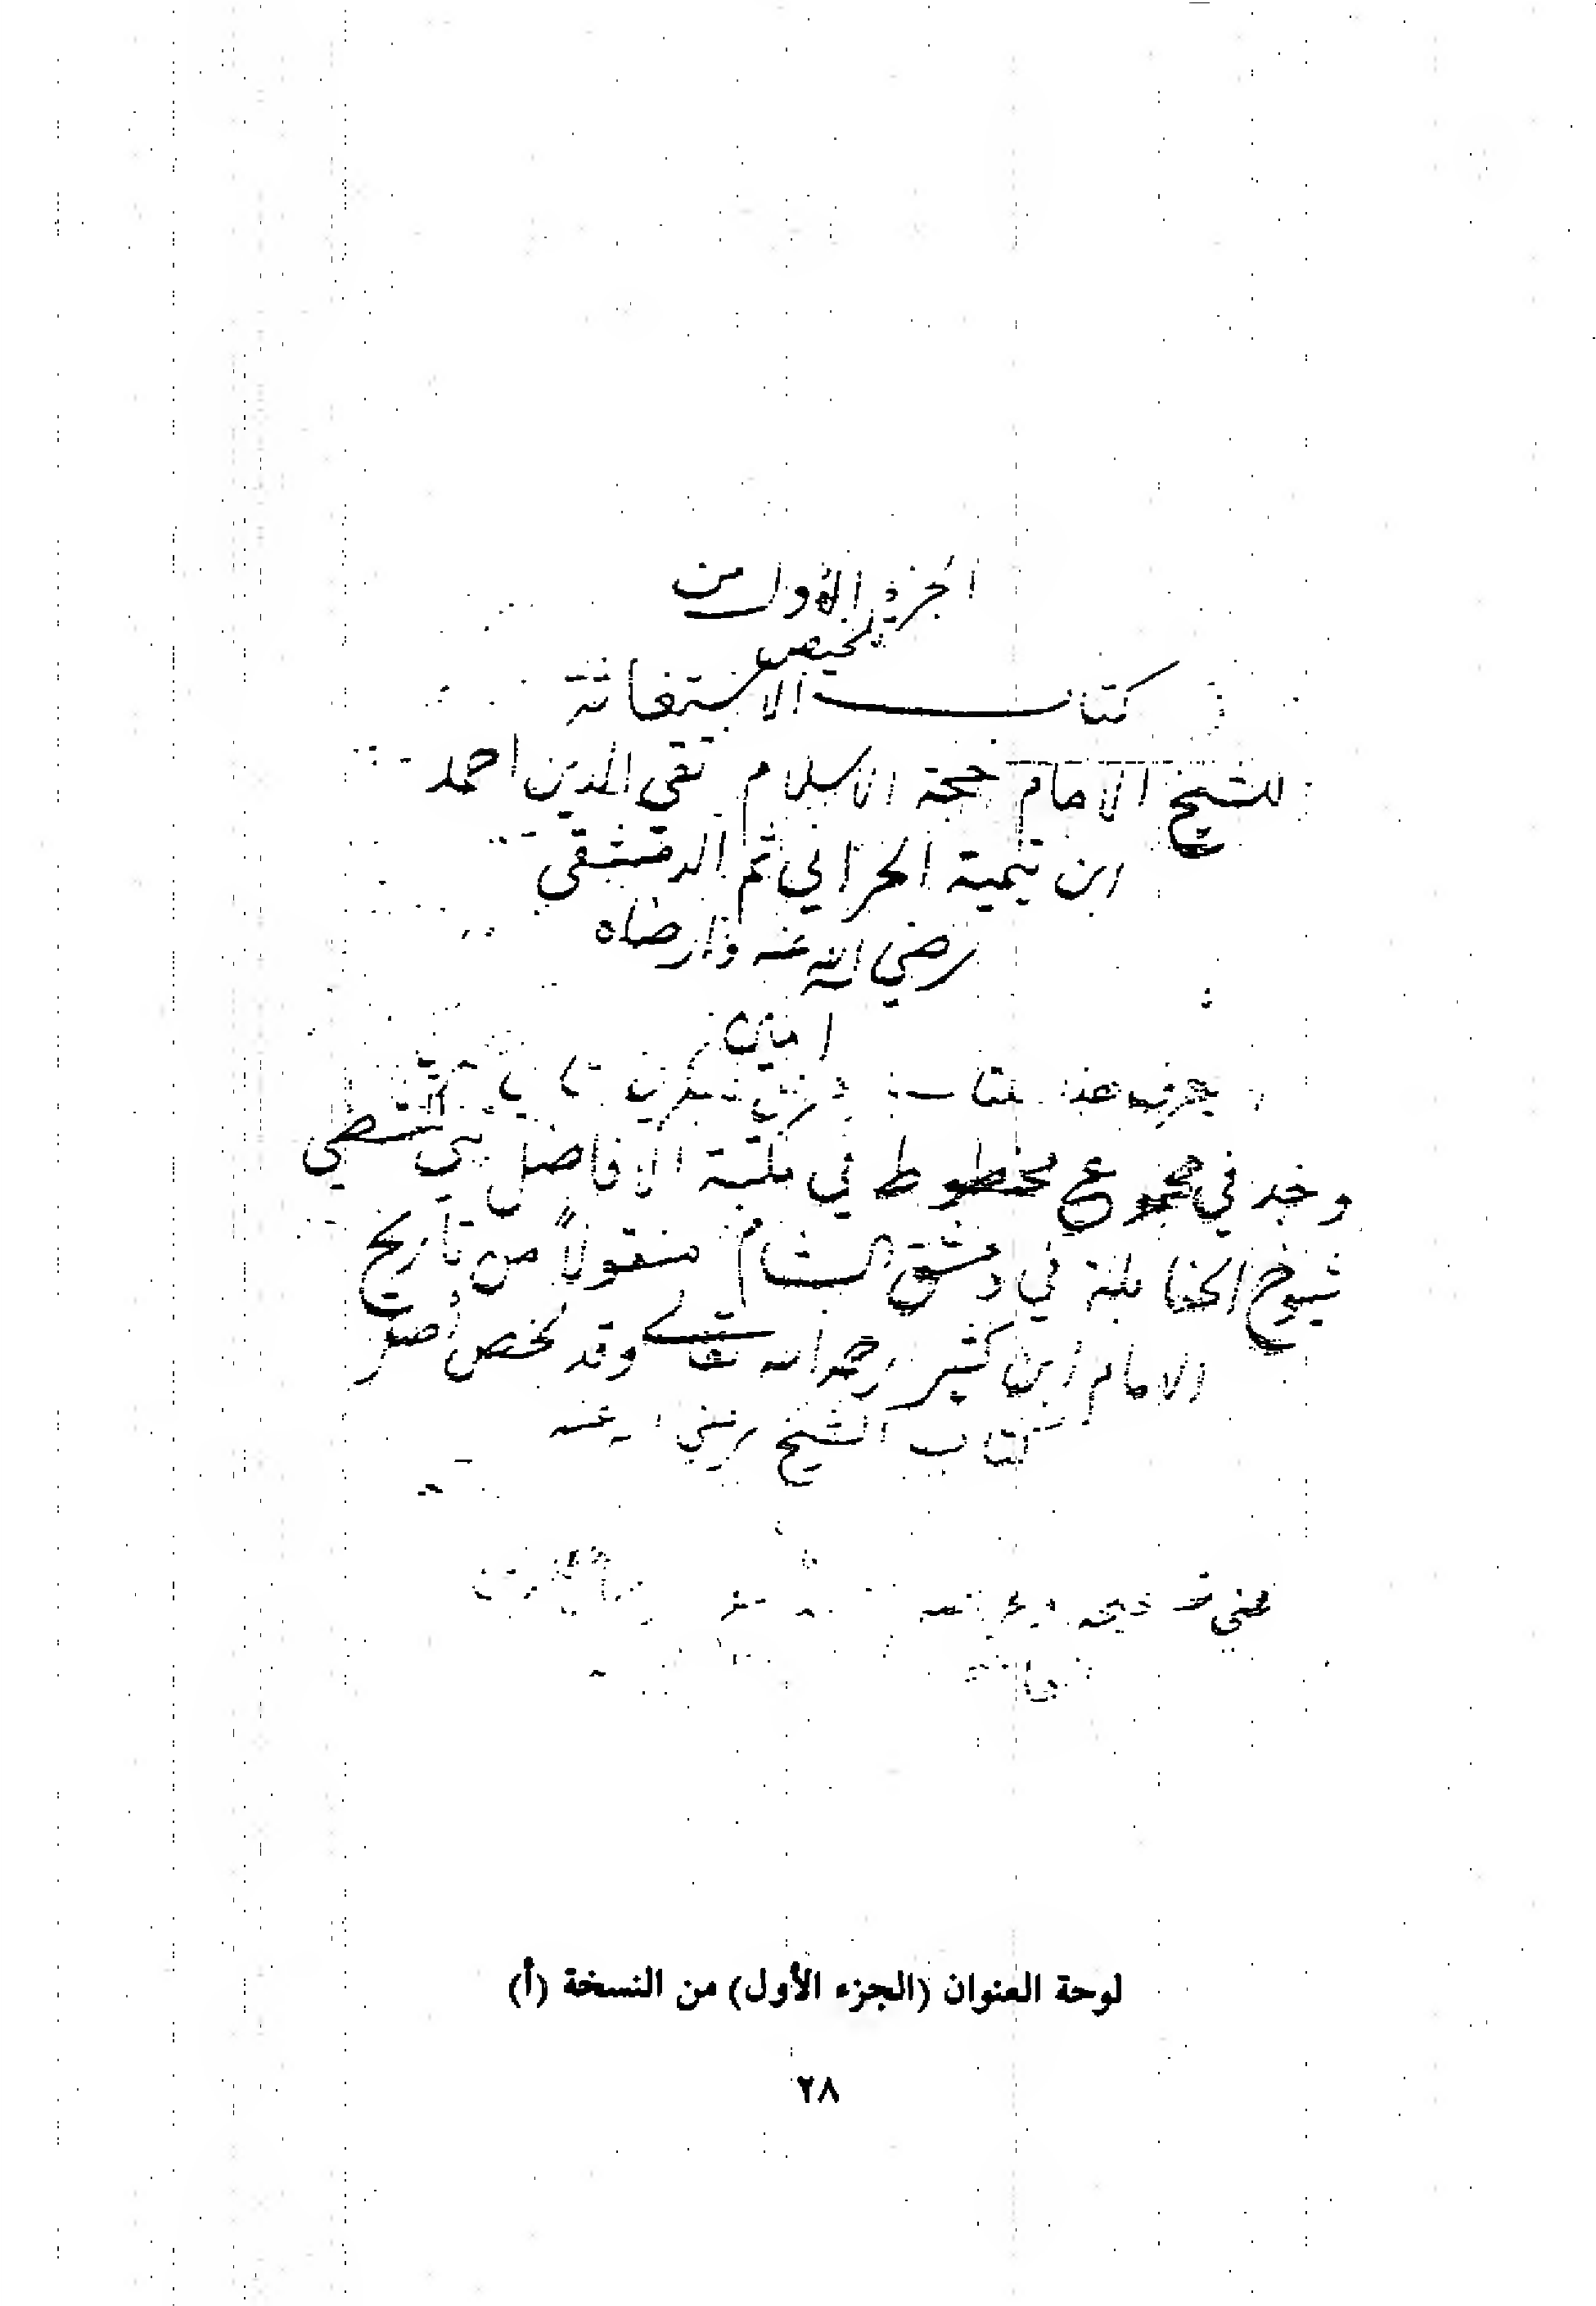 الجزء الأول من
تلخيص
كتاب الاستغاثة
للشيخ الامام حجة الاسلام تقي الدين احمد
ابن تيمية الحراني ثم الدمشقي
رضي الله عنه وارضاه
امين
وجد في مجموع مخطوط في مكتبة الافاضل بني الشطي
شيوخ الحنابلة في دمشق الشام منقولاً من تاريخ
الامام ابن كثير رحمه الله تعالى وقد لخص
كتاب الشيخ رضي الله عنه
لوحة العنوان (الجزء الأول) من النسخة (أ)
٢٨